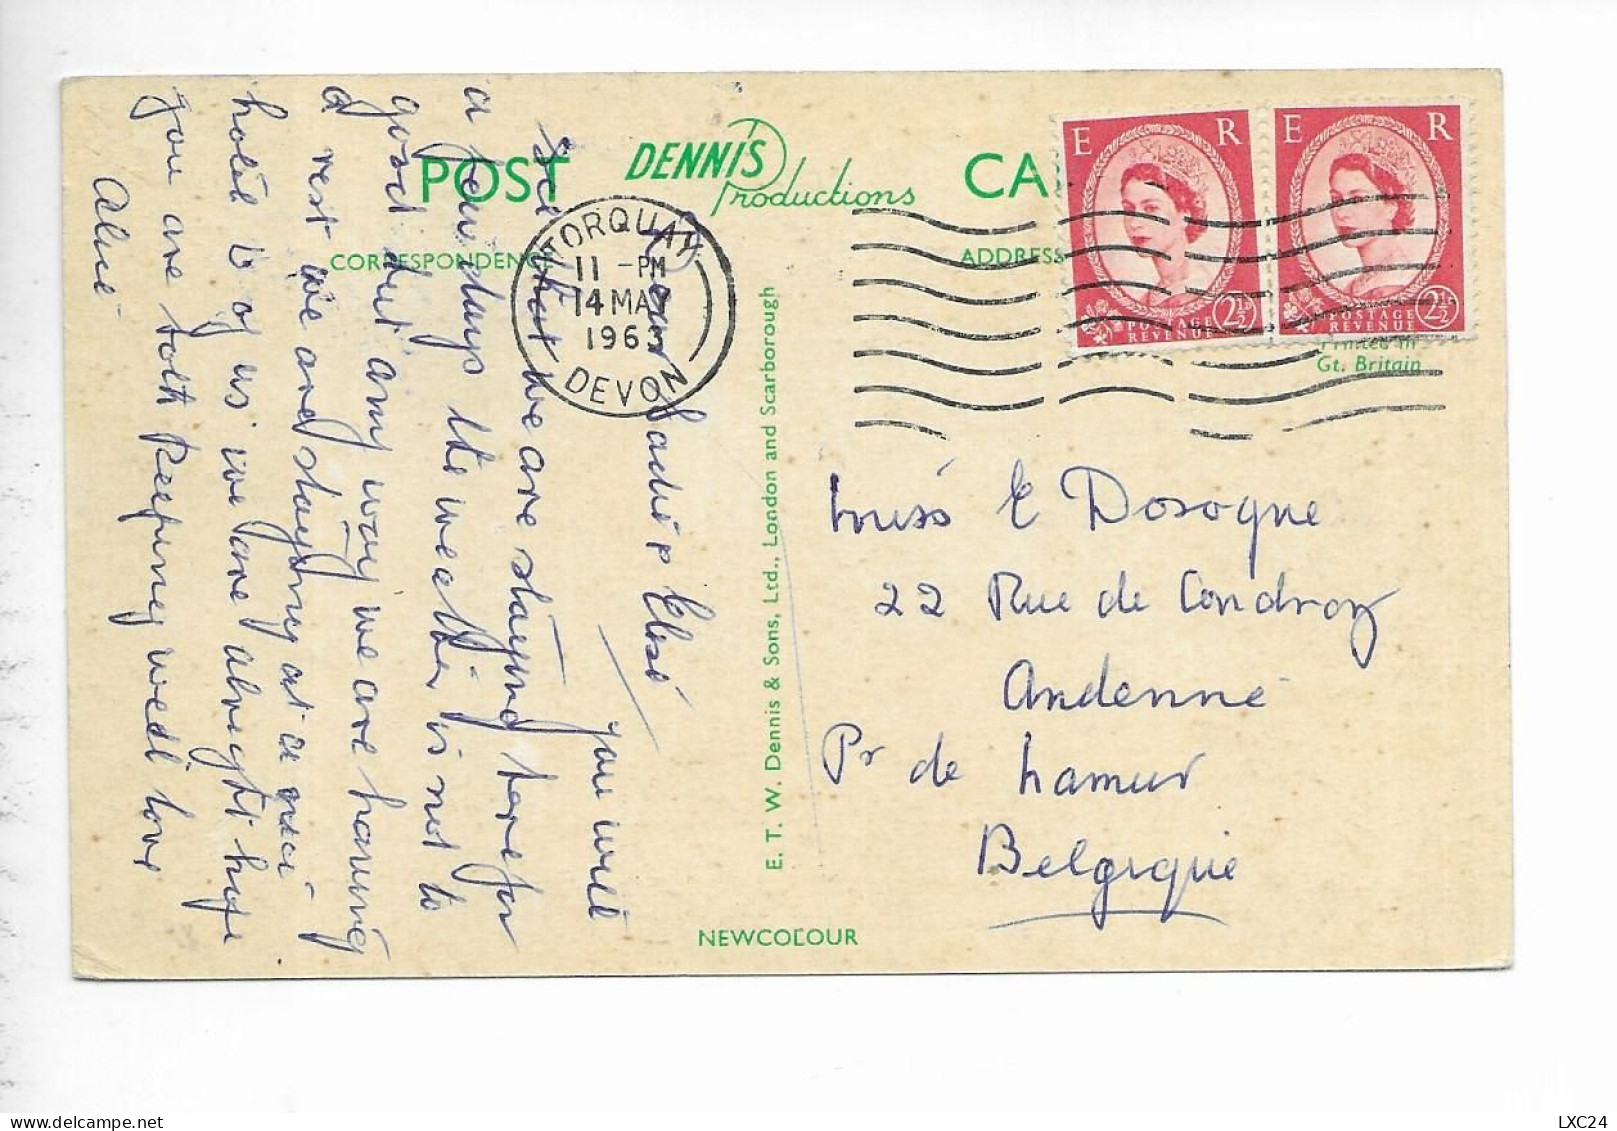 POST CA
DENNIS
Productions
CORRESPONDENCE
ADDRESS
TORQUAY
11 - PM
14 MAY
1963
DEVON
E R
POSTAGE
REVENUE
2½
E R
POSTAGE
REVENUE
2½
Printed in
Gt. Britain
Dear Sadie & Elsie
you will
see that we are staying here for
a few days the weather is not to
good but any way we are having
a rest we are staying at a nice
hotel 6 of us we are alright hope
you are both keeping well love
Alice
E. T. W. Dennis & Sons, Ltd., London and Scarborough
NEWCOLOUR
Miss E Dosogne
22 Rue de Condroz
Andenne
Pr de Namur
Belgique
LXC24